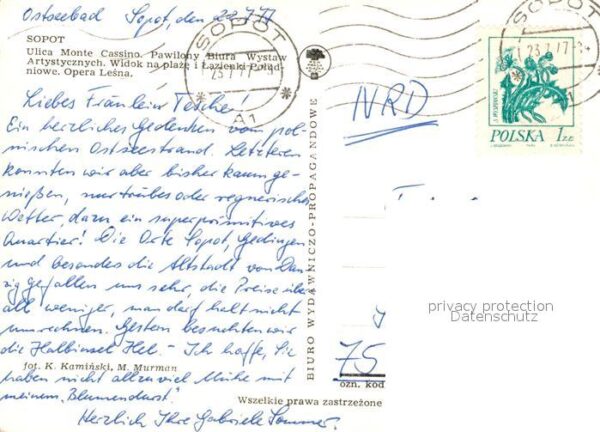 Ostseebad Sopot, den 22.7.77
SOPOT
Ulica Monte Cassino. Pawilony Biura Wystaw
Artystycznych. Widok na plażę i Łazienki Połud-
niowe. Opera Leśna.
Liebes Fräulein Tetsche!
Ein herzliches Gedenken vom pol-
nischen Ostseestrand. Letzteren
konnten wir aber bisher kaum ge-
nießen, nur trübes oder regnerisches
Wetter, dazu ein superprimitives
Quartier! Die Orte Sopot, Gedingen
und besonders die Altstadt von Dan-
zig gefallen uns sehr, die Preise über-
all weniger, man darf halt nicht
umrechnen. Gestern besuchten wir
die Halbinsel Hel. - Ich hoffe, Sie
fot. K. Kamiński, M. Murman
haben nicht allzuviel Mühe mit
meinem "Blumendurst".
Herzlich Ihre Gabriele Sommer.
BIURO WYDAWNICZO-PROPAGANDOWE
SOPOT
23.7.77
A1
NRD
SOPOT
23.7.77
POLSKA 1 ZŁ
T . . .
privacy protection
Datenschutz
y
75
ozn. kod
Wszelkie prawa zastrzeżone